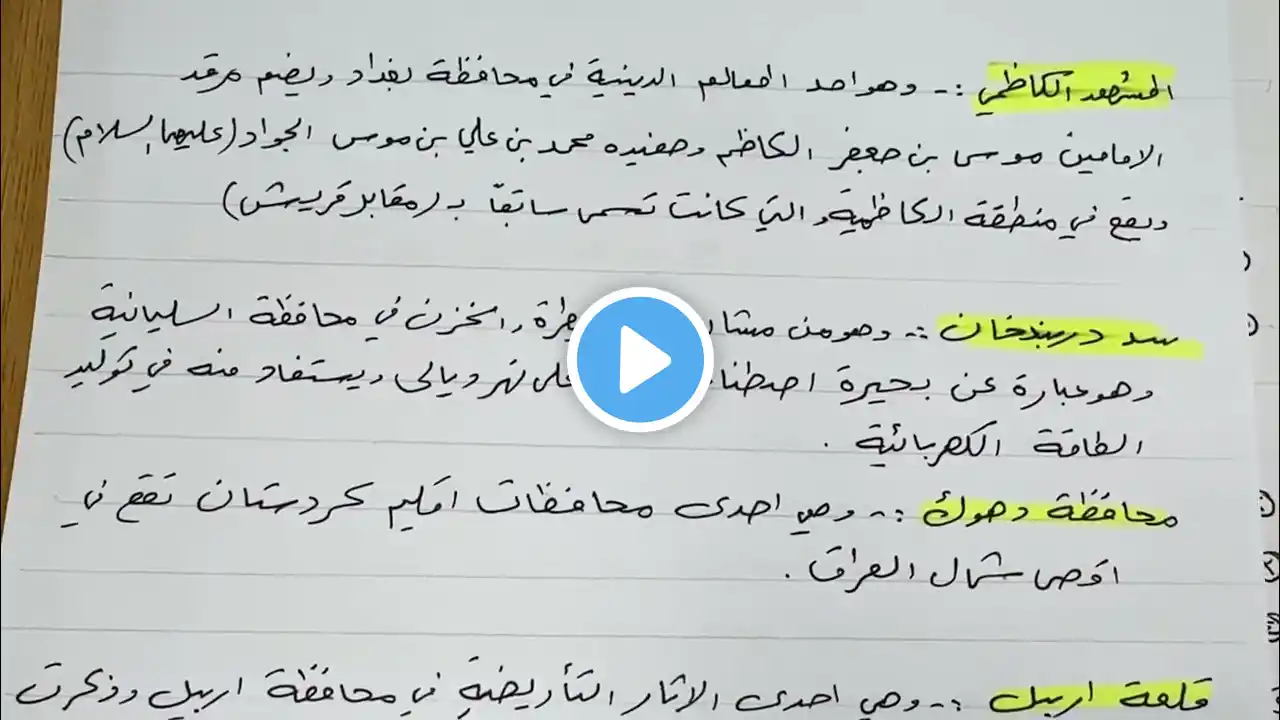 المشهد الكاظمي :- وهو احد المعالم الدينية في محافظة بغداد ويضم مرقد
الامامين موسى بن جعفر الكاظم وحفيده محمد بن علي بن موسى الجواد (عليهما السلام)
ويقع في منطقة الكاظمية والتي كانت تسمى سابقاً بـ (مقابر قريش)
سد دربندخان :- وهو من والخزن في محافظة السليمانية
وهو عبارة عن بحيرة على نهر ديالى ويستفاد منه في توليد
الطاقة الكهربائية .
محافظة دهوك :- وهي احدى محافظات اقليم كردستان تقع في
اقصى شمال العراق .
قلعة اربيل :- وهي احدى الاثار التأريخية في محافظة اربيل وذكرت